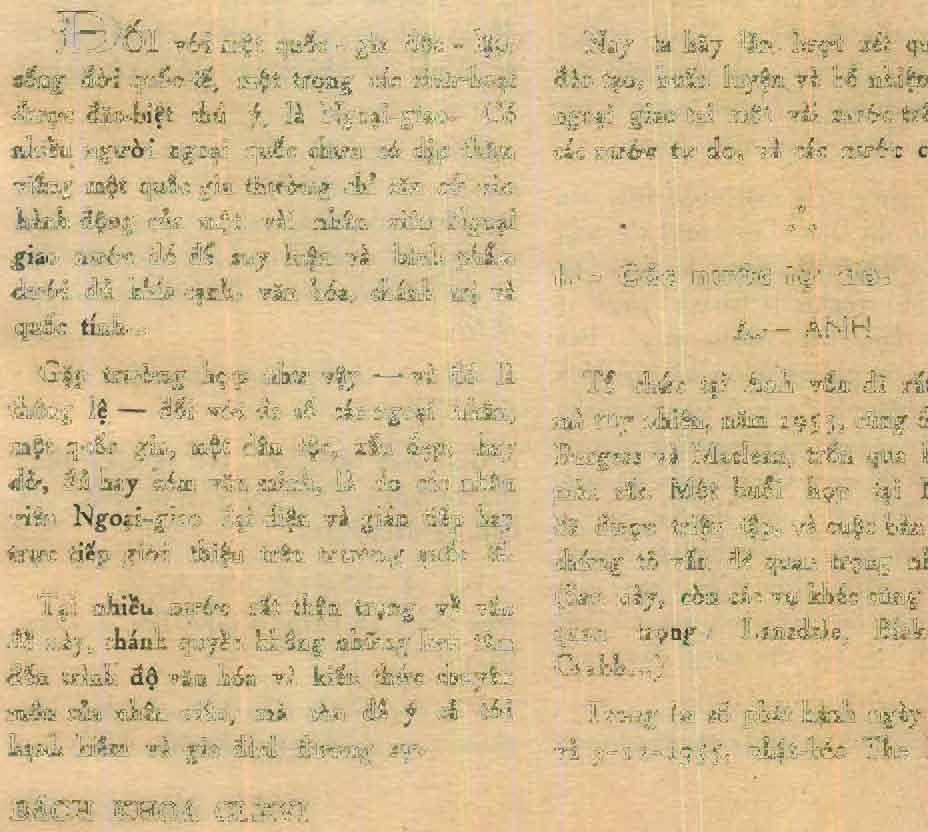 ĐỐI với một quốc-gia độc-lập
sống đời quốc-tế, một trong các sinh-hoạt
được đặc-biệt chú ý, là Ngoại-giao. Có
nhiều người ngoại quốc chưa có dịp thăm
viếng một quốc gia thường chỉ căn cứ vào
hành động của một vài nhân viên Ngoại
giao nước đó để suy luận và bình phẩm
dưới đủ khía cạnh, văn hóa, chánh trị và
quốc tính...
Gặp trường hợp như vậy — và đó là
thông lệ — đối với đa số các ngoại nhân,
một quốc gia, một dân tộc, xấu đẹp, hay
dở, đủ hay kém văn minh, là do các nhân
viên Ngoại-giao đại diện và gián tiếp hay
trực tiếp giới thiệu trên trường quốc tế.
Tại nhiều nước rất thận trọng về vấn
đề này, chánh quyền không những lưu tâm
đến trình độ văn hóa và kiến thức chuyên
môn của nhân viên, mà còn để ý cả tới
hạnh kiểm và gia đình đương sự.
BÁCH KHOA
Nay ta hãy lần lượt xét qu
đào tạo, huấn luyện và bổ nhiệm
ngoại giao tại một vài nước trê
các nước tự do, và các nước c
I. — Các nước tự do.
A. — ANH
Tổ chức tại Anh vẫn đi rất
mà tuy nhiên, năm 1955, cũng
Burgess và Maclean, trốn qua
màn sắt. Một buổi họp tại
đã được triệu tập, và cuộc bàn
chứng tỏ vấn đề quan trọng nh
(Sau này, còn các vụ khác cũng
quan trọng: Lonsdale, Blake
Crabb...)
Trong ba số phát hành ngày
và 9-12-1955, nhật-báo The